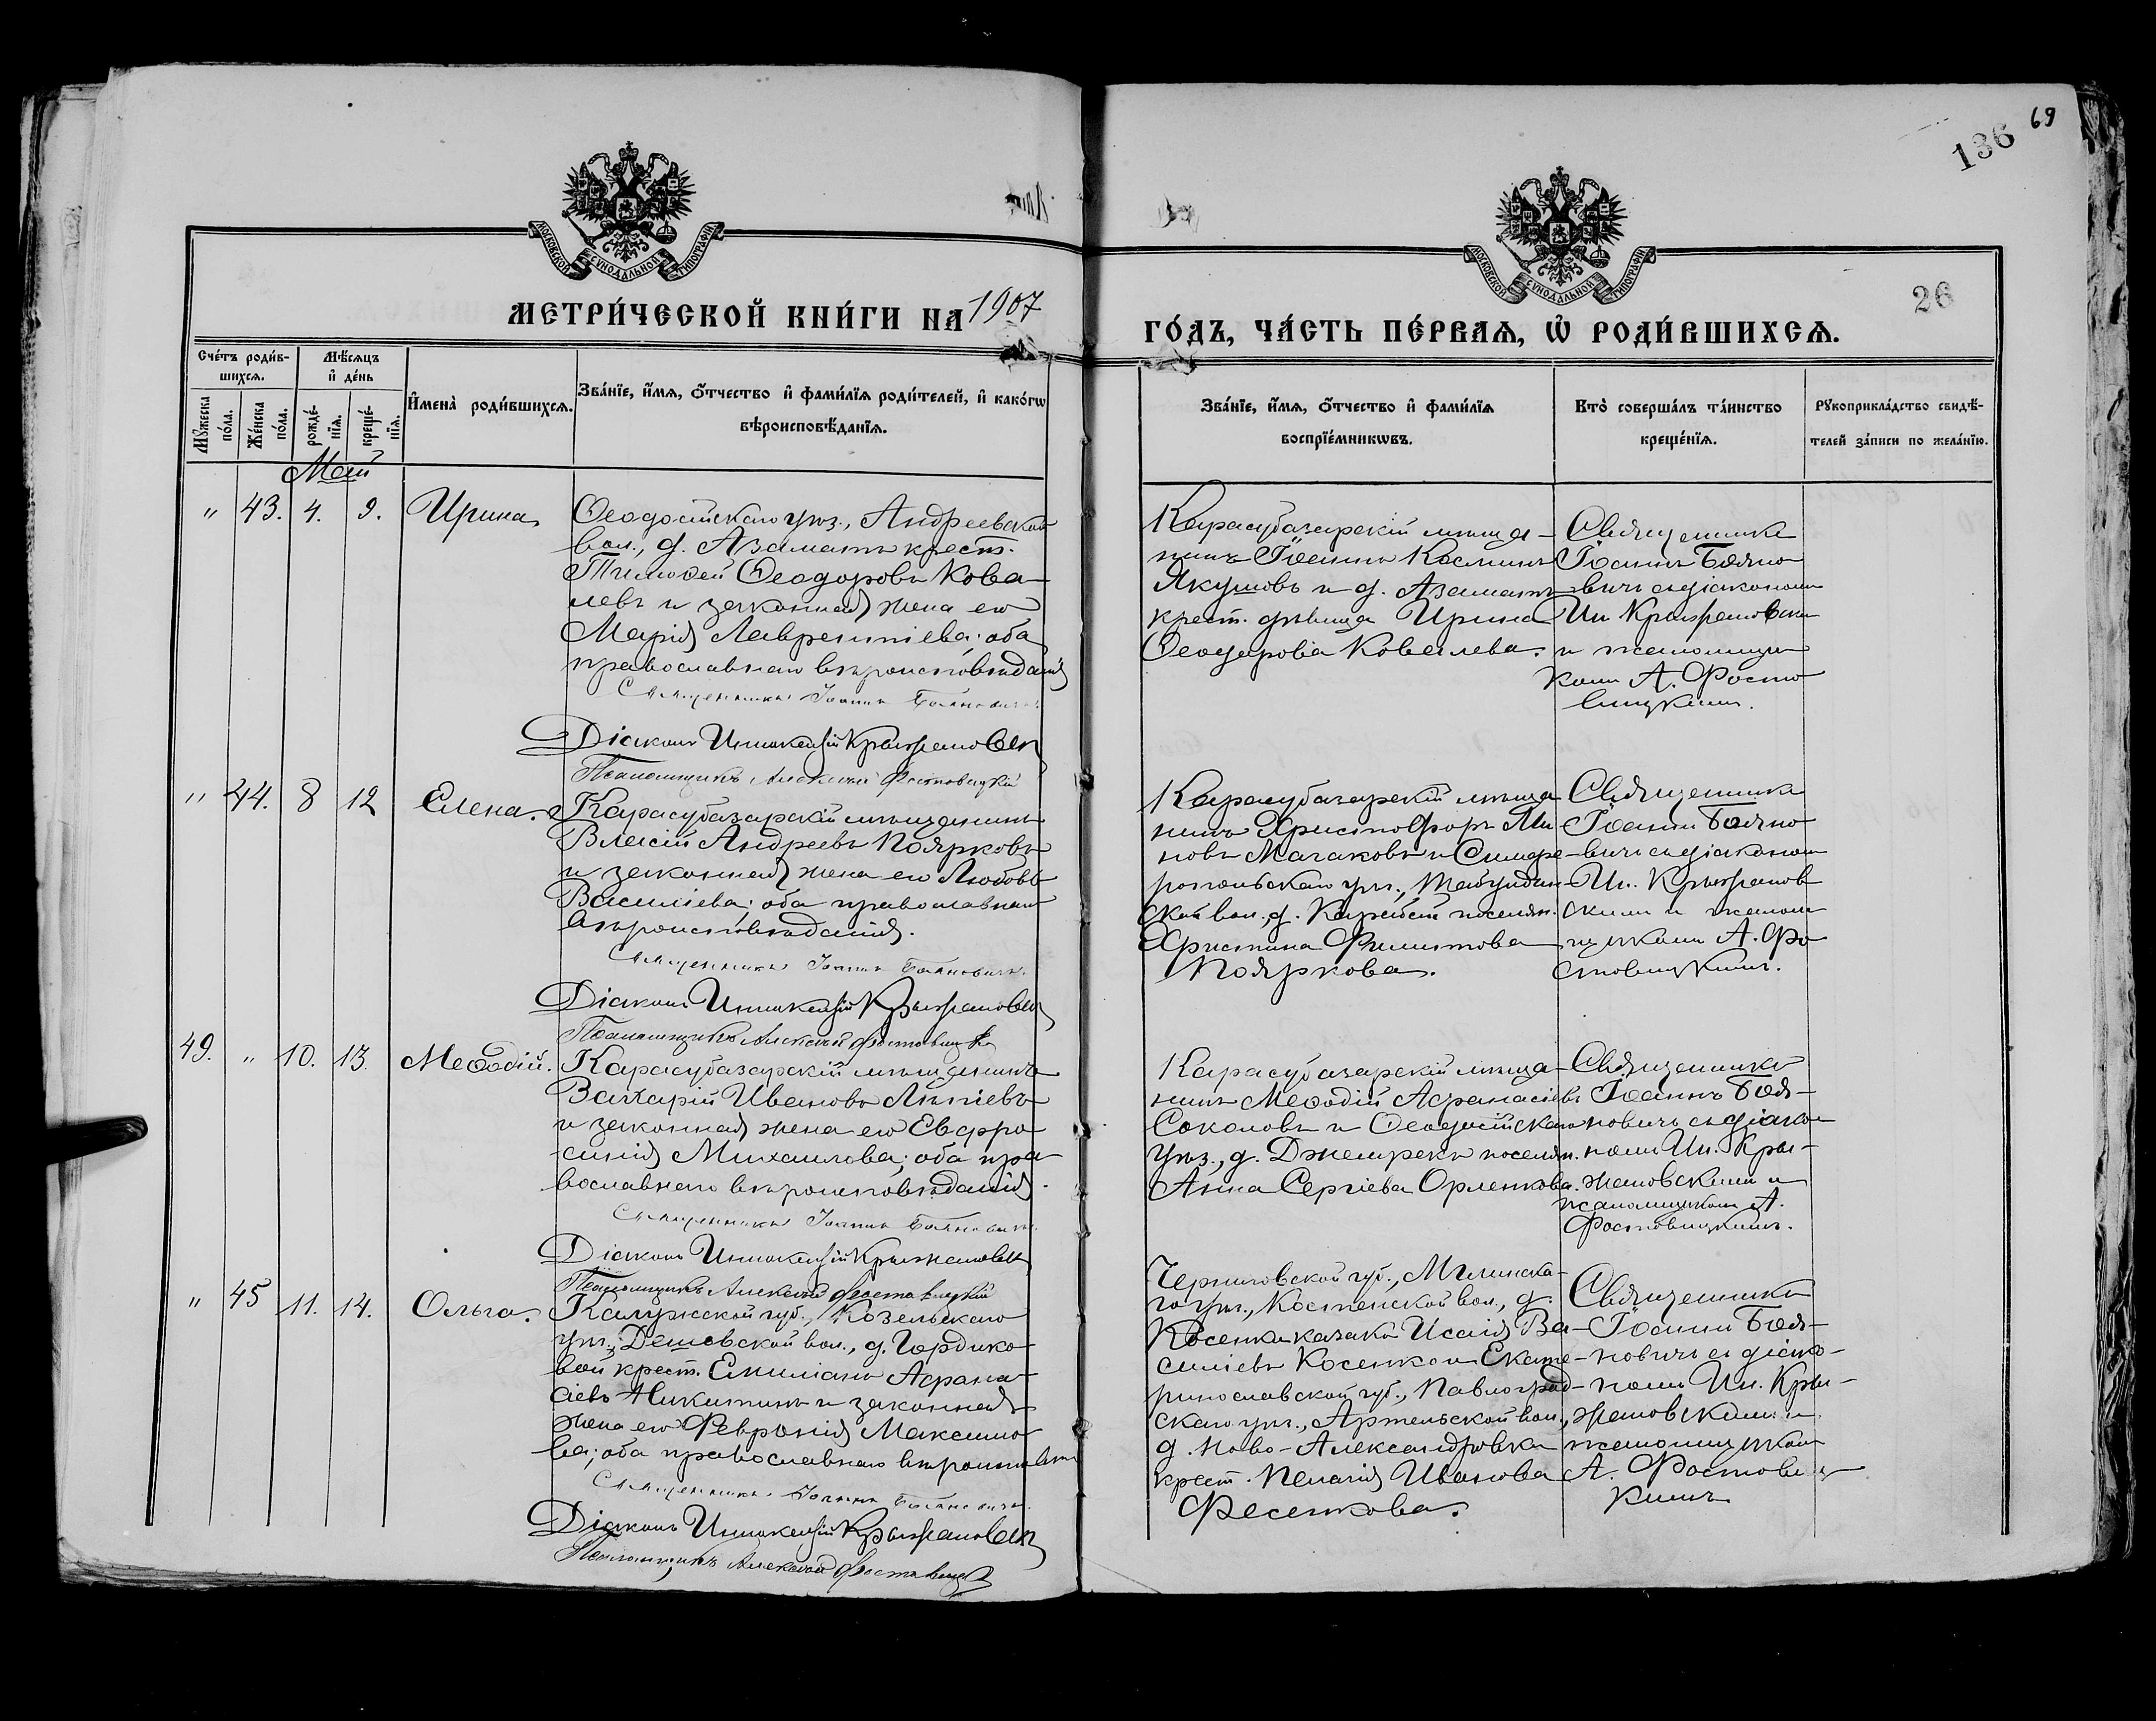 69
136
МОСКОВСКОЙ СѴНОДАЛЬНОЙ ТИПОГРАФІИ
МОСКОВСКОЙ СѴНОДАЛЬНОЙ ТИПОГРАФІИ
26
МЕТРИ́ЧЕСКОЙ КНИ́ГИ НА 1907
ГО́ДЪ, ЧА́СТЬ ПЕ́РВАЯ, Ѡ҆ РОДИ́ВШИХСЯ.
Сче́тъ роди́в-
шихся.
Мѣ́сяцъ
и҆ де́нь
Мꙋ́жеска
по́ла.
Же́нска
по́ла.
рожде́-
нїя.
креще́-
нїя.
И҆мена̀ роди́вшихся.
Зва́нїе, и҆́мя, ѻ҆́тчество и҆ фами́лїя роди́телей, и҆ како́гѡ
вѣроисповѣ́данїя.
Зва́нїе, и҆́мя, ѻ҆́тчество и҆ фами́лїя
воспрїе́мникѡвъ.
Кто̀ соверша́лъ та́инство
креще́нїя.
Рꙋкоприкла́дство свидѣ́-
телей за́писи по жела́нїю.
Май
" 43. 4. 9. Ирина
Ѳеодосійскаго уѣз., Андреевской
вол., д. Азаматъ крест.
Тимоѳей Ѳеодоровъ Кова-
левъ и законная жена его
Марія Лаврентіева; оба
православнаго вѣроисповѣданія
Священникъ Іоаннъ Бояновичъ.
Діаконъ Иннокентій Крыжановскій
Псаломщикъ Алексѣй Фостовицкій
Карасубазарскій мѣща-
нинъ Іоаннъ Косминъ
Якушовъ и д. Азаматъ
крест. дѣвица Ирина
Ѳеодорова Ковалева.
Священникъ
Іоаннъ Бояно-
вичъ съ діакономъ
Ин. Крыжановским
и псаломщи
комъ А. Фосто
вицкимъ.
" 44. 8 12 Елена.
Карасубазарскій мѣщанинъ
Власій Андреевъ Поярковъ
и законная жена его Любовь
Васильева; оба православнаго
вѣроисповѣданія.
Священникъ Іоаннъ Бояновичъ.
Діаконъ Иннокентій Крыжановскій
Псаломщикъ Алексѣй Фостовицкій
Карасубазарскій мѣща
нинъ Христофоръ Ми
новъ Мачаковъ и Симфе-
ропольскаго уѣз., Табулдин-
ской вол., д. поселян.
Христина Филиппова
Пояркова.
Священникъ
Іоаннъ Бояно
вичъ съ діаконом
Ин. Крыжанов
скимъ и псалом
щикомъ А. Фо
стовицкимъ.
49. " 10. 13. Меѳодій.
Карасубазарскій мѣщанинъ
Захарій Ивановъ
и законная жена его Евфро
синія Михаилова; оба пра-
вославнаго вѣроисповѣданія.
Священникъ Іоаннъ Бояновичъ.
Діаконъ Иннокентій Крыжановскій
Псаломщикъ Алексѣй Фостовицкій
Карасубазарскій мѣща-
нинъ Меѳодій Аѳанасіевъ
Соколовъ и Ѳеодосійскаго
уѣз., д. Джемрекъ поселян.
Анна Сергіева Орленкова.
Священникъ
Іоаннъ Боя-
новичъ съ діако-
номъ Ин. Кры-
жановскимъ и
псаломщикомъ А.
Фостовицкимъ.
" 45 11. 14. Ольга.
Калужской губ., Козельскаго
уѣз., Дешевской вол., д. Гордико-
вой крест. Емиліанъ Аѳана-
сіевъ Никитинъ и законная
жена его Февронія Максимо
ва; оба православнаго вѣроисповѣд
Священникъ Іоаннъ Бояновичъ.
Діаконъ Иннокентій Крыжановскій
Псаломщикъ Алексѣй Фостовицкій
Черниговской губ., Мглинска-
го уѣз., вол., д.
Косенки казакъ Исаія Ва-
силіевъ Косенко и Екате-
ринославской губ., Павлоград-
скаго уѣз., Артельской вол.,
д. Ново-Александровка
крест. Пелагія Иванова
Фесенкова.
Священникъ
Іоаннъ Боя-
новичъ съ діако-
номъ Ин. Кры-
жановскимъ и
псаломщиком
А. Фостовиц
кимъ